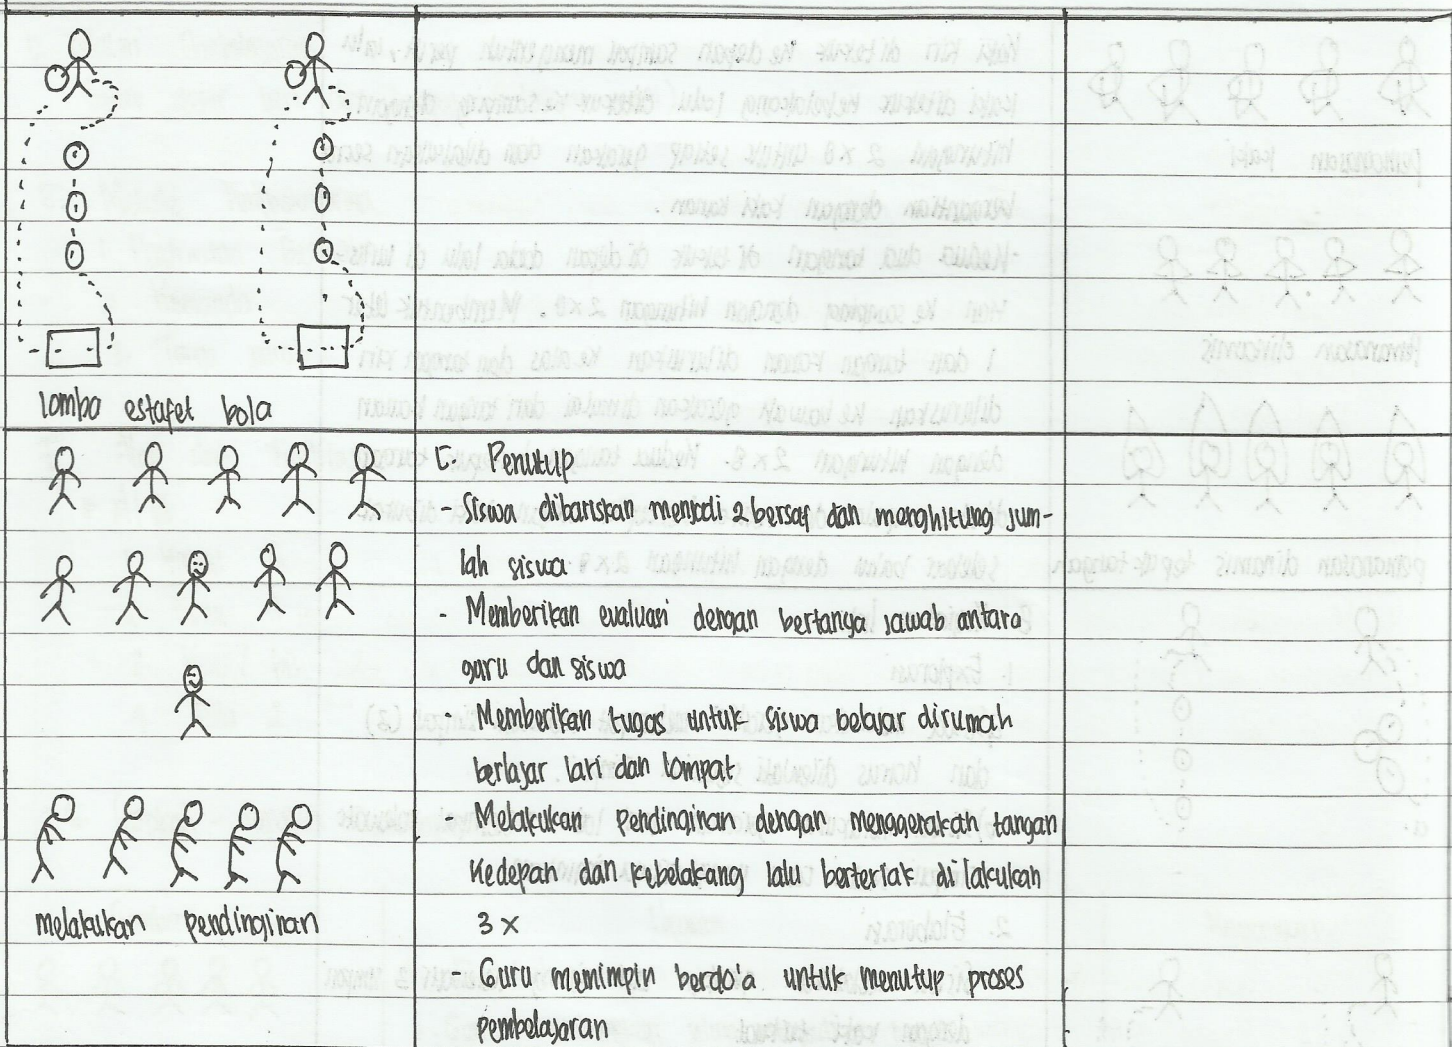 lomba estafet bola
C. Penutup
- Siswa dibariskan menjadi 2 bersaf dan menghitung jum-
lah siswa
- Memberikan evaluasi dengan bertanya jawab antara
guru dan siswa
- Memberikan tugas untuk siswa belajar dirumah
berlajar lari dan lompat
- Melakukan pendinginan dengan menggerakan tangan
kedepan dan kebelakang lalu berteriak dilakukan
3 x
melakukan pendinginan
- Guru memimpin berdo'a untuk menutup proses
pembelajaran